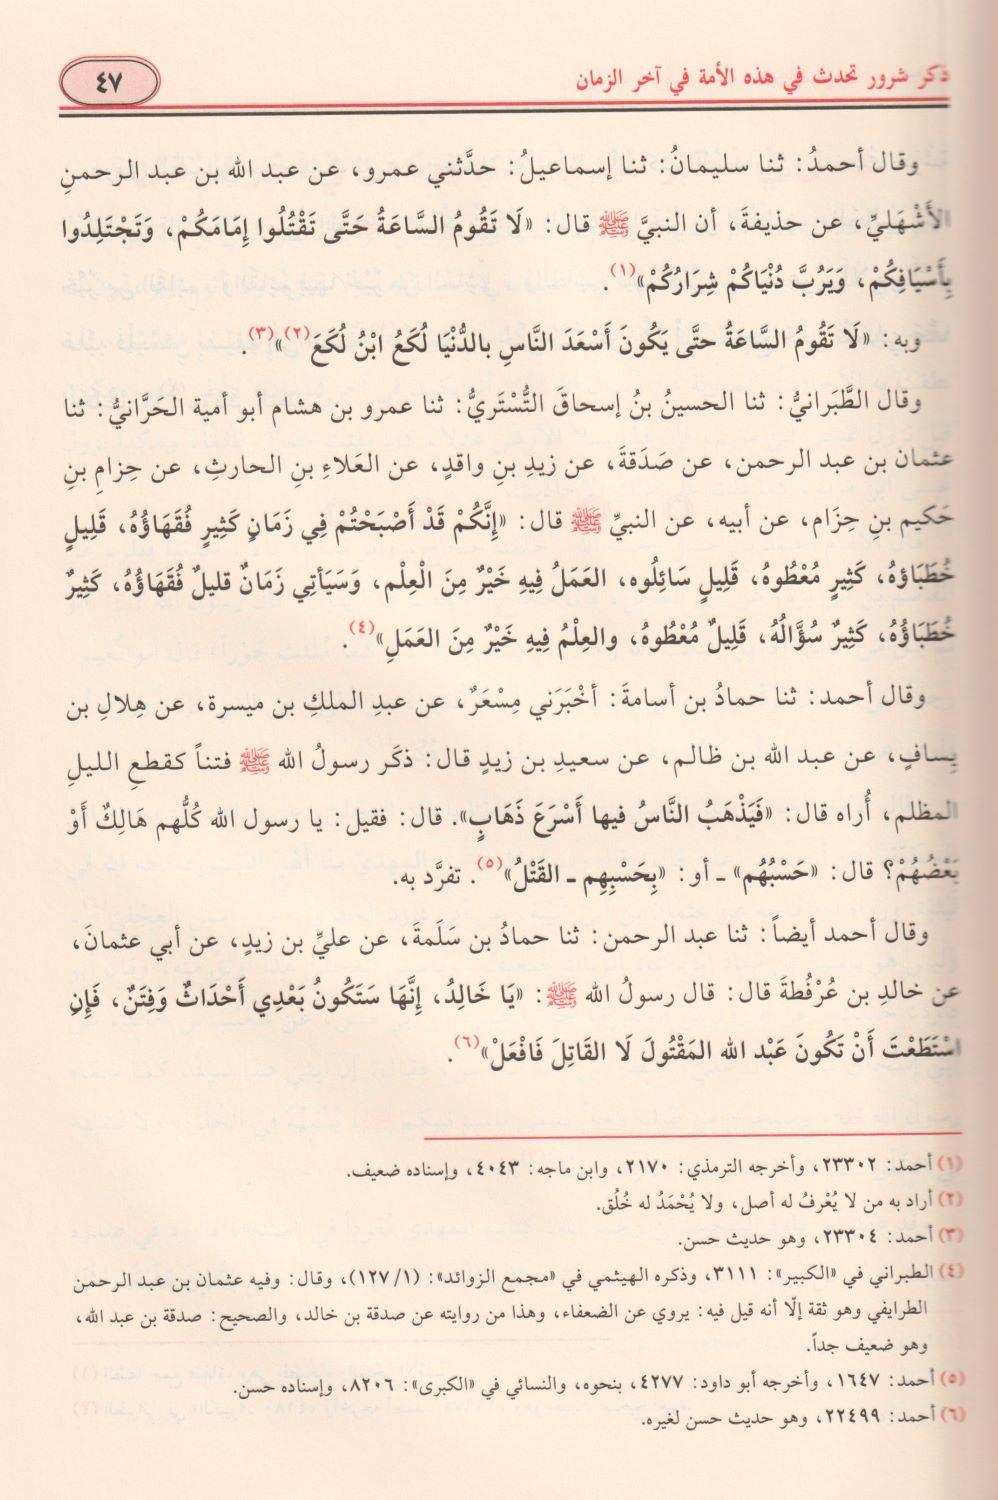 ذكر شرور تحدث في هذه الأمة في آخر الزمان
٤٧
وقال أحمدُ: ثنا سليمانُ: ثنا إسماعيلُ: حدَّثني عمرو، عن عبد الله بن عبد الرحمنِ
الأَشْهَليِّ، عن حذيفةَ، أن النبيَّ ﷺ قال: «لَا تَقُومُ السَّاعَةُ حَتَّى تَقْتُلُوا إِمَامَكُمْ، وَتَجْتَلِدُوا
بِأَسْيَافِكُمْ، وَيَرُبَّ دُنْيَاكُمْ شِرَارُكُمْ»(١).
وبه: «لَا تَقُومُ السَّاعَةُ حتَّى يَكُونَ أَسْعَدَ النَّاسِ بالدُّنْيَا لُكَعُ ابْنُ لُكَعَ(٢)»(٣).
وقال الطَّبَرانيُّ: ثنا الحسينُ بنُ إسحاقَ التُّسْتَريُّ: ثنا عمرو بن هشام أبو أمية الحَرَّانيُّ: ثنا
عثمان بن عبد الرحمن، عن صَدَقةَ، عن زيدِ بنِ واقدٍ، عن العَلاءِ بنِ الحارثِ، عن حِزامِ بنِ
حَكيم بنِ حِزَام، عن أبيه، عن النبيِّ ﷺ قال: «إِنَّكُمْ قَدْ أَصْبَحْتُمْ فِي زَمَانٍ كَثِيرٍ فُقَهَاؤُهُ، قَلِيلٍ
خُطَبَاؤهُ، كَثِيرٍ مُعْطُوهُ، قَلِيلٍ سَائِلُوه، العَمَلُ فِيهِ خَيْرٌ مِنَ الْعِلْم، وَسَيَأتِي زَمَانٌ قليلٌ فُقَهَاؤُهُ، كَثِيرٌ
خُطَبَاؤُهُ، كَثِيرٌ سُؤَّالُهُ، قَلِيلٌ مُعْطُوهُ، والعِلْمُ فِيهِ خَيْرٌ مِنَ العَمَلِ»(٤).
وقال أحمد: ثنا حمادُ بن أسامةَ: أخْبَرَني مِسْعَرٌ، عن عبدِ الملكِ بن ميسرة، عن هِلالِ بن
يِسافٍ، عن عبد الله بن ظالم، عن سعيدِ بن زيدٍ قال: ذكَر رسولُ الله ﷺ فتناً كقطعِ الليلِ
المظلم، أُراه قال: «فَيَذْهَبُ النَّاسُ فيها أَسْرَعَ ذَهَابٍ». قال: فقيل: يا رسول الله كُلُّهم هَالِكٌ أَوْ
بَعْضُهُمْ؟ قال: «حَسْبُهُم» ـ أو: «بِحَسْبِهِم ـ القَتْلُ»(٥). تفرَّد به.
وقال أحمد أيضاً: ثنا عبد الرحمن: ثنا حمادُ بن سَلَمةَ، عن عليِّ بن زيدٍ، عن أبي عثمانَ،
عن خالدِ بن عُرْفُطةَ قال: قال رسولُ الله ﷺ: «يَا خَالِدُ، إِنَّهَا سَتَكُونُ بَعْدِي أَحْدَاثٌ وَفِتَنٌ، فَإِنِ
اسْتَطَعْتَ أَنْ تَكُونَ عَبْد الله المَقْتُولَ لَا القَاتِلَ فَافْعَلْ»(٦).
(١) أحمد: ٢٣٣٠٢، وأخرجه الترمذي: ٢١٧٠، وابن ماجه: ٤٠٤٣، وإسناده ضعيف.
(٢) أراد به من لا يُعْرفُ له أصل، ولا يُحْمَدُ له خُلُق.
(٣) أحمد: ٢٣٣٠٤، وهو حديث حسن.
(٤) الطبراني في «الكبير»: ٣١١١، وذكره الهيثمي في «مجمع الزوائد»: (١٢٧/١)، وقال: وفيه عثمان بن عبد الرحمن
الطرايفي وهو ثقة إلّا أنه قيل فيه: يروي عن الضعفاء، وهذا من روايته عن صدقة بن خالد، والصحيح: صدقة بن عبد الله،
وهو ضعيف جداً.
(٥) أحمد: ١٦٤٧، وأخرجه أبو داود: ٤٢٧٧، بنحوه، والنسائي في «الكبرى»: ٨٢٠٦، وإسناده حسن.
(٦) أحمد: ٢٢٤٩٩، وهو حديث حسن لغيره.